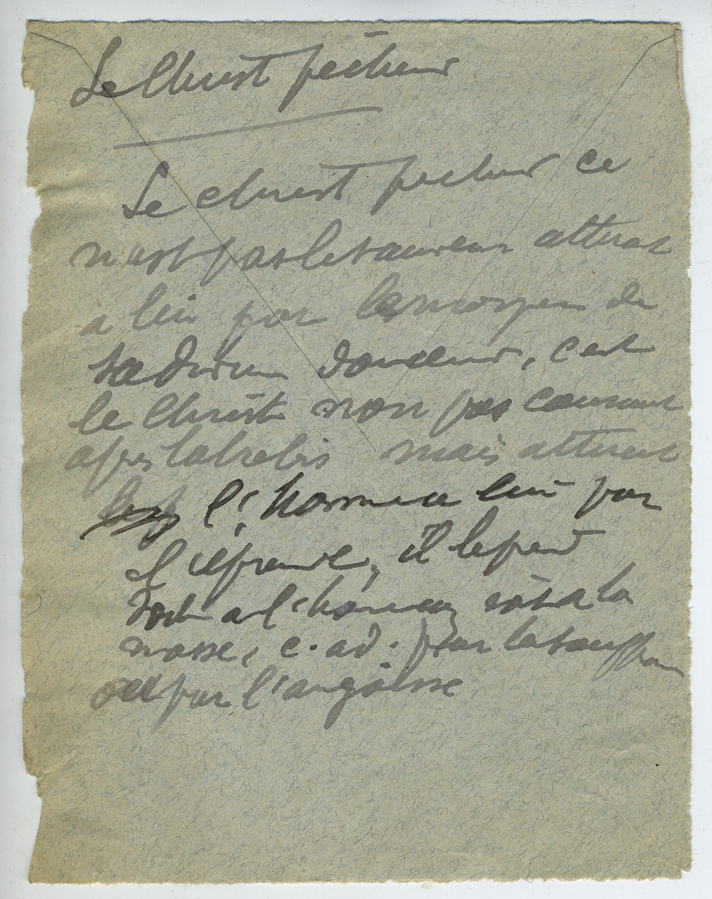 Le Christ pêcheur
Le Christ pêcheur ce
n'est pas le sauveur attirant
à lui par le moyen de
sa divine douceur, c'est
le Christ non pas courant
après la brebis mais attirant
l'homme à lui par
l'épreuve, il le prend
soit à l'hameçon soit à la
nasse, c. a d. par la souffrance
ou par l'angoisse